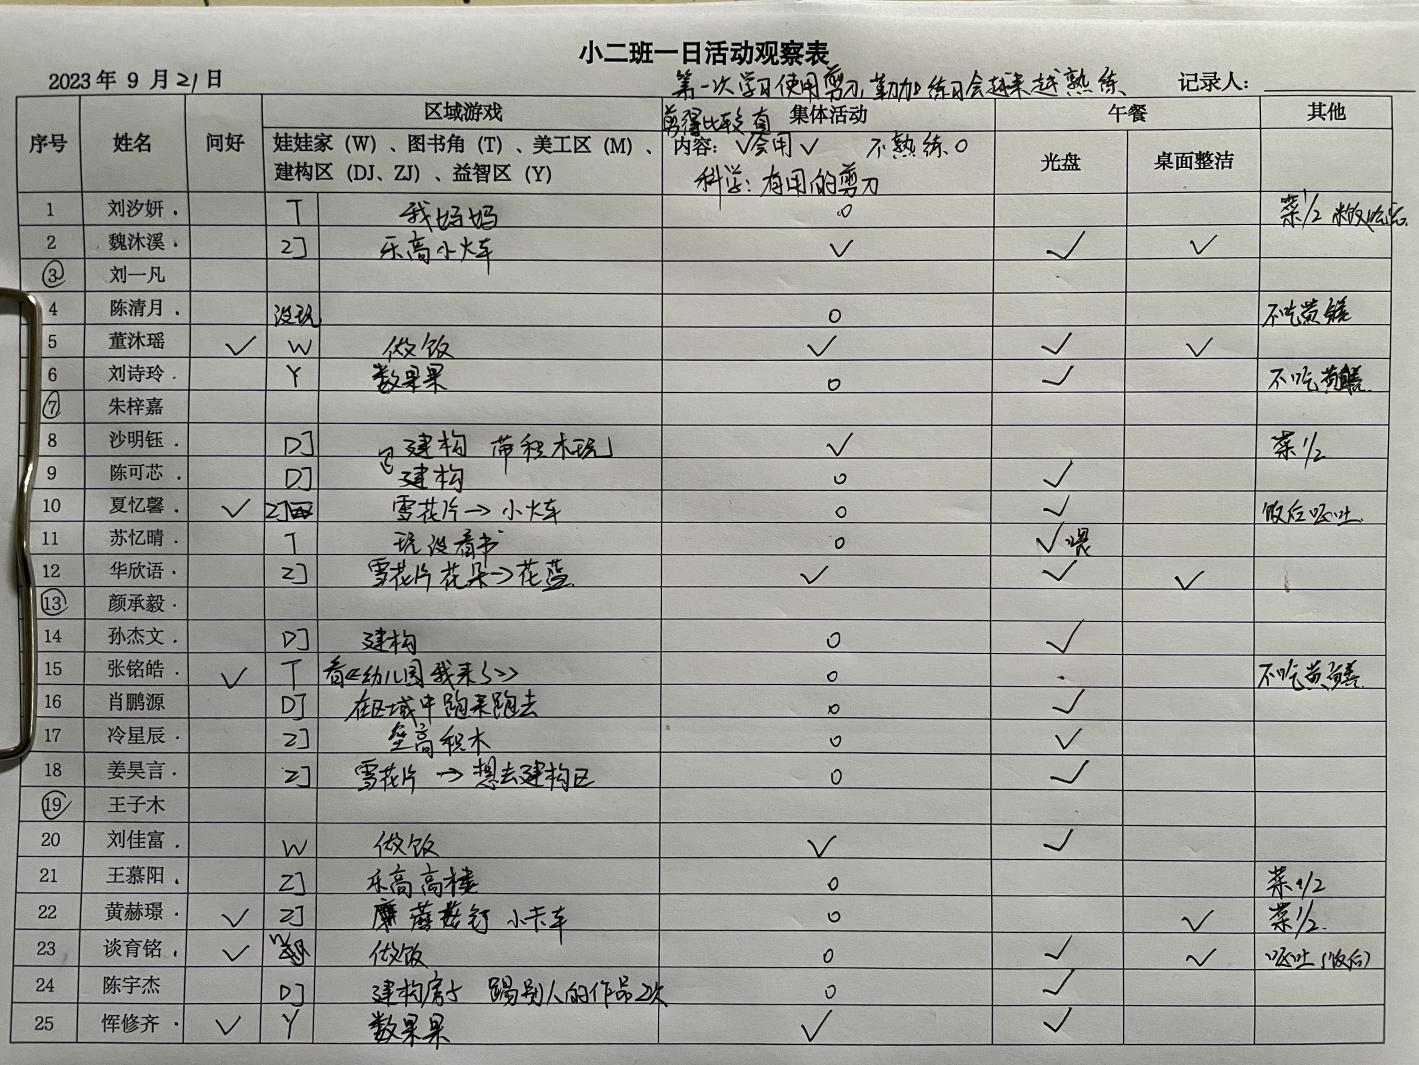 小二班一日活动观察表
2023 年 9 月 21 日 第一次学习使用剪刀,勤加练习会越来越熟练 记录人:
序号 姓名 问好 区域游戏 剪得比较直 集体活动 午餐 其他
娃娃家（W）、图书角（T）、美工区（M）、 内容: √会用√ 不熟练 O 光盘 桌面整洁
建构区（DJ、ZJ）、益智区（Y） 科学:有用的剪刀
1 刘汐妍 . T 我妈妈 O 菜1/2 米饭
2 魏沐溪 . ZJ 乐高小火车 √ √ √
③ 刘一凡
4 陈清月 . 没玩 O 不吃黄鳝
5 董沐瑶 √ W 做饭 √ √ √
6 刘诗玲 . Y 数果果 O √ 不吃黄鳝
⑦ 朱梓嘉
8 沙明钰 . DJ 建构 带积木玩 √ 菜1/2
9 陈可芯 . DJ 建构 O √
10 夏忆馨 . √ ZJ 雪花片→小火车 O √ 饭后呕吐
11 苏忆晴 . T 玩没看书 O √喂
12 华欣语 . ZJ 雪花片花朵→花蓝 √ √ √
⑬ 颜承毅 .
14 孙杰文 . DJ 建构 O √
15 张铭皓 . √ T 看《幼儿园我来了》 O . 不吃黄鳝
16 肖鹏源 DJ 在区域中跑来跑去 O √
17 冷星辰 . ZJ 垒高积木 O √
18 姜昊言 . ZJ 雪花片→想去建构区 O √
⑲ 王子木
20 刘佳富 . W 做饭 √ √
21 王慕阳 . ZJ 乐高高楼 O 菜1/2
22 黄赫璟 . √ ZJ 蘑菇钉 小卡车 O √ 菜1/2
23 谈育铭 . √ W 做饭 O √ √ 呕吐(饭后)
24 陈宇杰 DJ 建构房子 踢别人的作品2次 O √
25 恽修齐 . √ Y 数果果 √ √